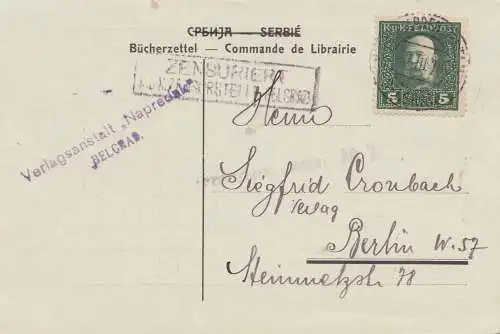 СРБИЈА — SERBIE
Bücherzettel — Commande de Librairie
K.u.K. FELDPOST
5 5
ZENSURIERT
BELGRAD
Verlagsanstalt „Napredak"
BELGRAD.
Herrn
Siegfrid Cronbach
Verlag
Berlin W. 57
Steinmetzstr 78